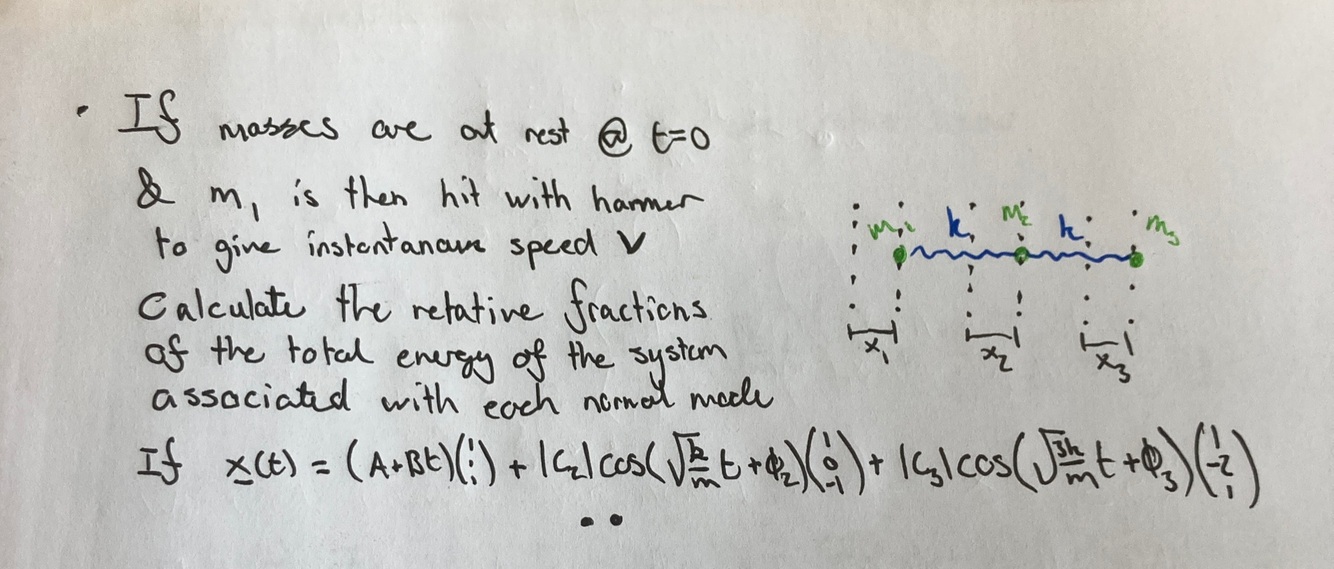 • If masses are at rest @ t=0
& m₁ is then hit with hammer
to give instantaneous speed V
Calculate the relative fractions
of the total energy of the system
associated with each normal mode
If x(t) = (A+Bt)(1 1 1) + |C₂|cos(√(k/m) t + ϕ₂)(1 0 -1) + |C₃|cos(√(3k/m) t + ϕ₃)(1 -2 1)
m₁ k m₂ k m₃
x₁ x₂ x₃